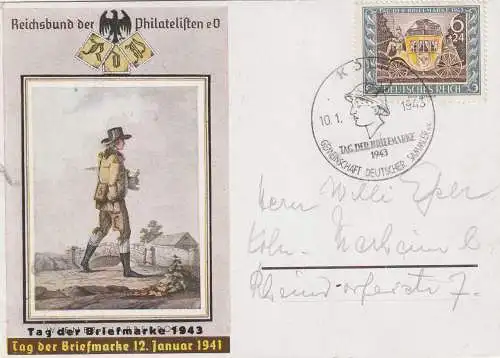 Reichsbund der Philatelisten eV
R d P
Tag der Briefmarke 1943
Tag der Briefmarke 12. Januar 1941
TAG DER BRIEFMARKE 1943
6
+24
DEUTSCHES REICH
KÖLN
10.1.1943
TAG DER BRIEFMARKE
1943
GEMEINSCHAFT DEUTSCHER SAMMLER e.V.
Herrn Willi
Köln
7.